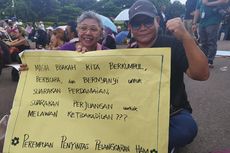 MASIH BISAKAH KITA BERKUMPUL,
BERBICARA, dan BERNYANYI untuk
SUARAKAN PERDAMAIAN
SUARAKAN PERJUANGAN untuk
MELAWAN KETIDAKADILAN ???
PEREMPUAN PENYINTAS PELANGGARAN HAM